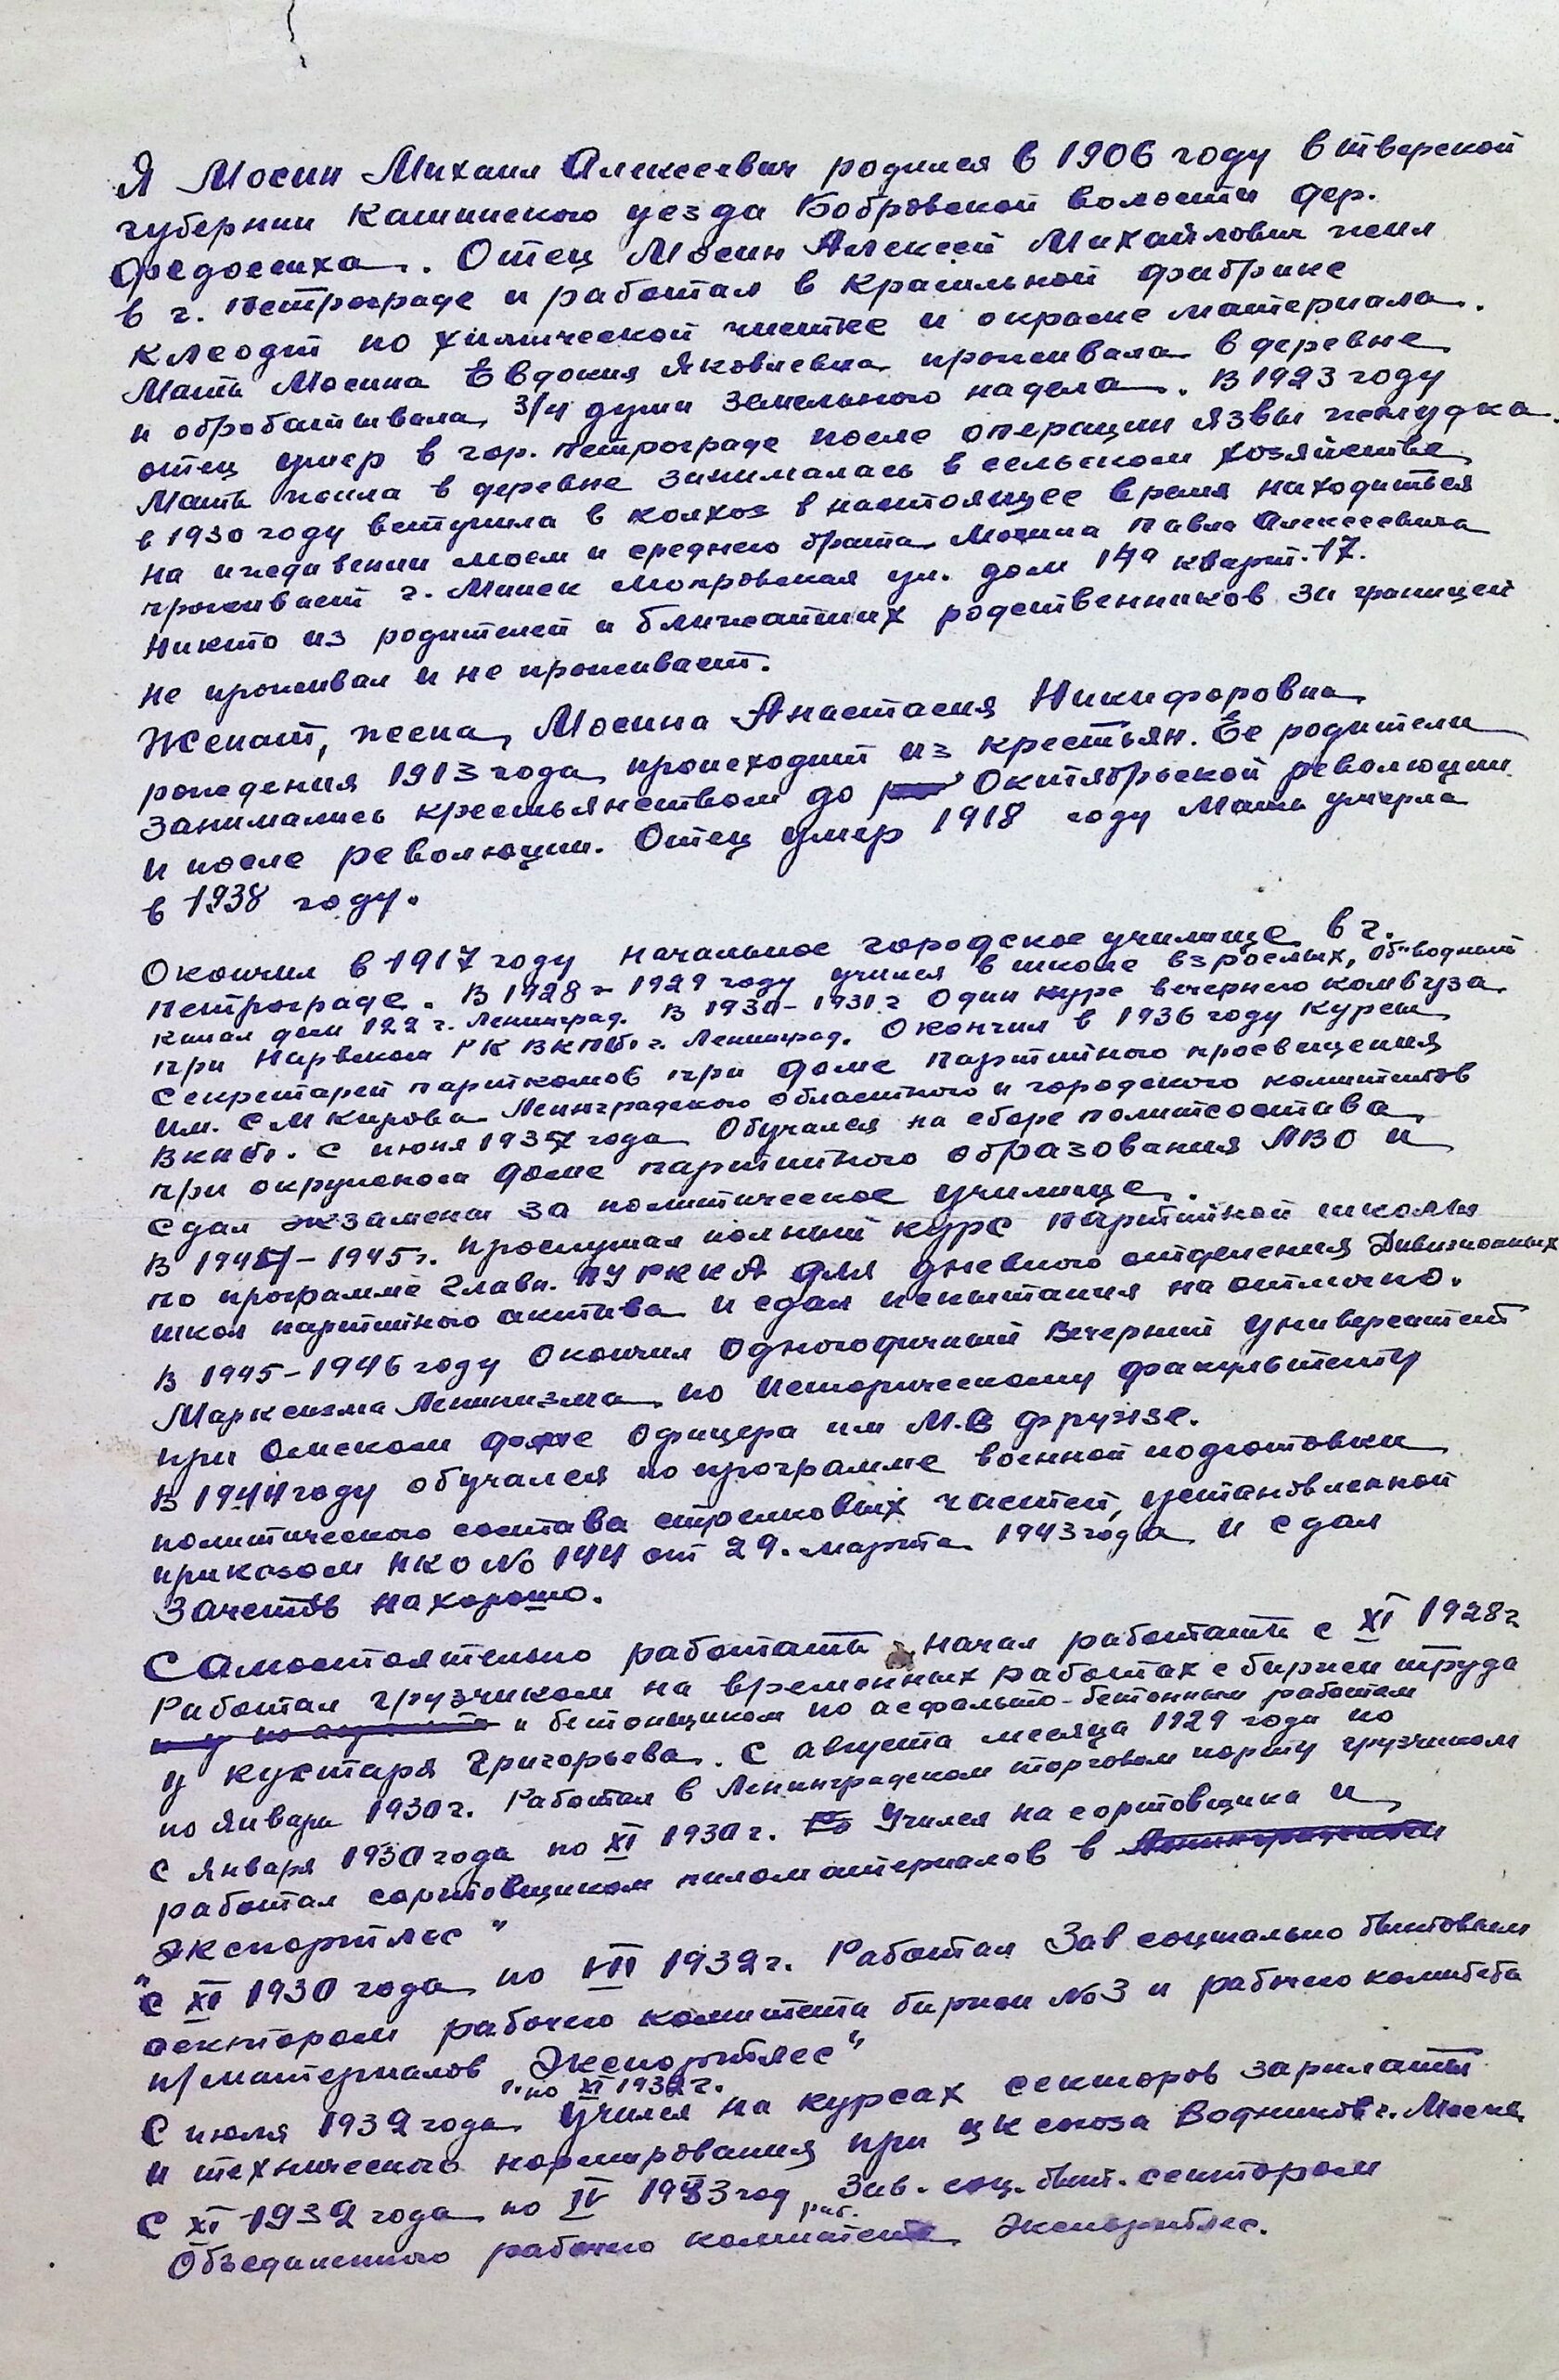 Я Мосин Михаил Алексеевич родился в 1906 году в тверской
губернии Кашинского уезда Бобровской волости дер.
Федосеиха. Отец Мосин Алексей Михайлович жил
в г. Петрограде и работал в Красильной фабрике
по химической чистке и окраске материала.
Мать Мосина Евдокия Яковлевна проживала в деревне
и обробатывала 3/4 души земельного надела. В 1923 году
отец умер в гор. Петрограде после операции язвы желудка.
Мать жила в деревне занималась в сельском хозяйстве
в 1930 году вступила в колхоз в настоящее время находиться
на иждивении моем и среднего брата Мосина Павла Алексеевича
проживает г. Минск Мопровская ул. дом 14а кварт. 17.
Никто из родителей и ближайших родственников за границей
не проживал и не проживает.
Женат, жена Мосина Анастасия Никифоровна
рождения 1913 года происходит из крестьян. Ее родители
занимались крестьянством до Октябрьской революции
и после революции. Отец умер 1918 году Мать умерла
в 1938 году.
Окончил в 1917 году начальное городское училище в г.
Петрограде. В 1928-1929 году учился в школе взрослых, Обводный
канал дом 122 г. Ленинград. В 1930-1931 г один курс вечернего комвуза
при Нарвском РК ВКПб. г. Ленинград. Окончил в 1936 году курсы
Секретарей парткомов при доме партийного просвещения
им. С М Кирова Ленинградского областного и городского комитетов
Вкпб. С июня 1937 года Обучался на сборе политсостава
при окружном доме партийного образования ЛВО и
сдал экзамены за политическое училище.
В 1944-1945 г. прослушал полный курс партийной школы
по программе Главн. ПУ РККА для дневного отделения Дивизионных
школ партийного актива и сдал испытания на отлично.
В 1945-1946 году Окончил Одногодичный Вечерний Университет
Марксизма Ленинизма по Историческому факультету
при Омском доме Офицера им М.В Фрунзе.
В 1944 году обучался по программе военной подготовки
политического состава стрелковых частей, установленной
приказом НКО No 144 от 29. марта 1943 года и сдал
Зачетов на хорошо.
Самостоятельно работать начал работать с XI 1928 г
Работал грузчиком на временных работах с биржи труда
и бетонщиком по асфальто-бетонным работам
у кустаря Григорьева. С августа месяца 1929 года по
по январь 1930 г. Работал в Ленинградском торговом порту грузчиком
С января 1930 года по XI 1930 г. Учился на сортовщика и
работал сортовщиком пиломатериалов в
Экспортлес"
"С XI 1930 года по VII 1932 г. Работал Зав социально бытовым
сектором рабочего комитета биржи No 3 и рабочего комитета
п/материалов Экспортлес"
по XI 1932 г.
С июля 1932 года Учился на курсах секторов зарплаты
и технического нормирования при ЦК союза Водников г. Москва
С XI 1932 года по IV 1933 год раб. Зав. соц. быт. сектором
Объединенного рабочего комитета Экспортлес.